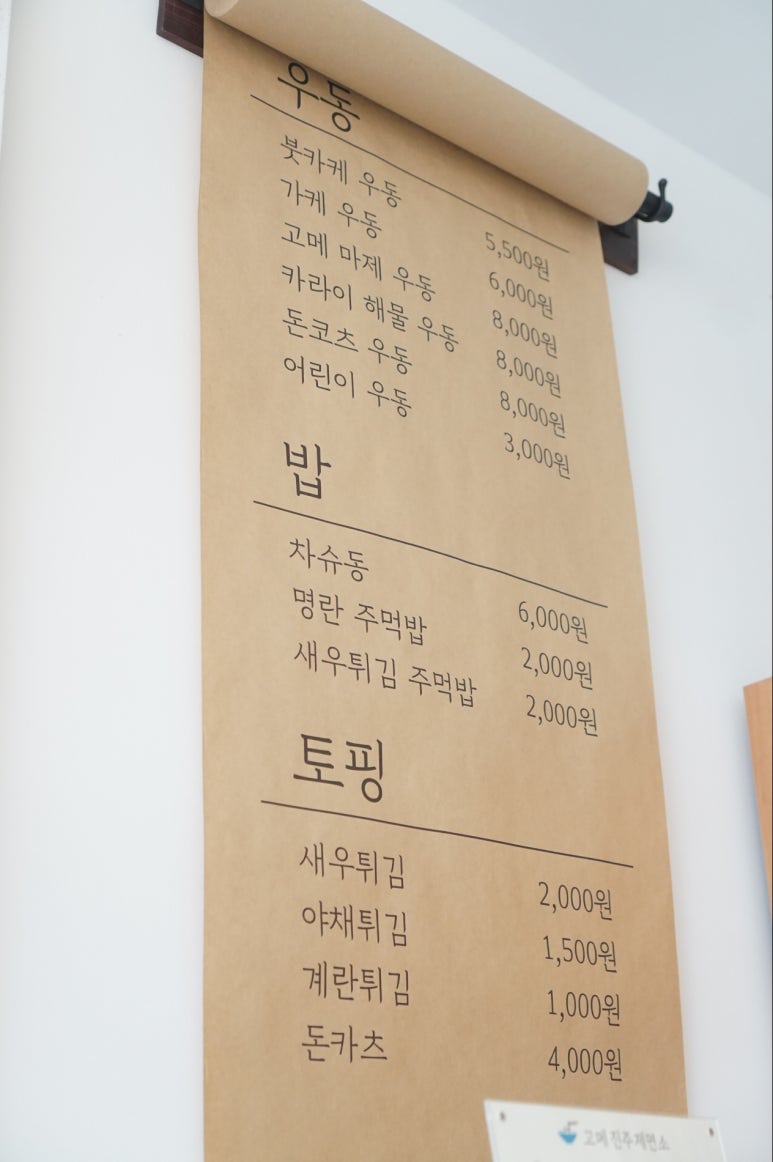 우동
붓카케 우동 5,500원
가케 우동 6,000원
고메 마제 우동 8,000원
카라이 해물 우동 8,000원
돈코츠 우동 8,000원
어린이 우동 3,000원
밥
차슈동 6,000원
명란 주먹밥 2,000원
새우튀김 주먹밥 2,000원
토핑
새우튀김 2,000원
야채튀김 1,500원
계란튀김 1,000원
돈카츠 4,000원
고메 진주제면소